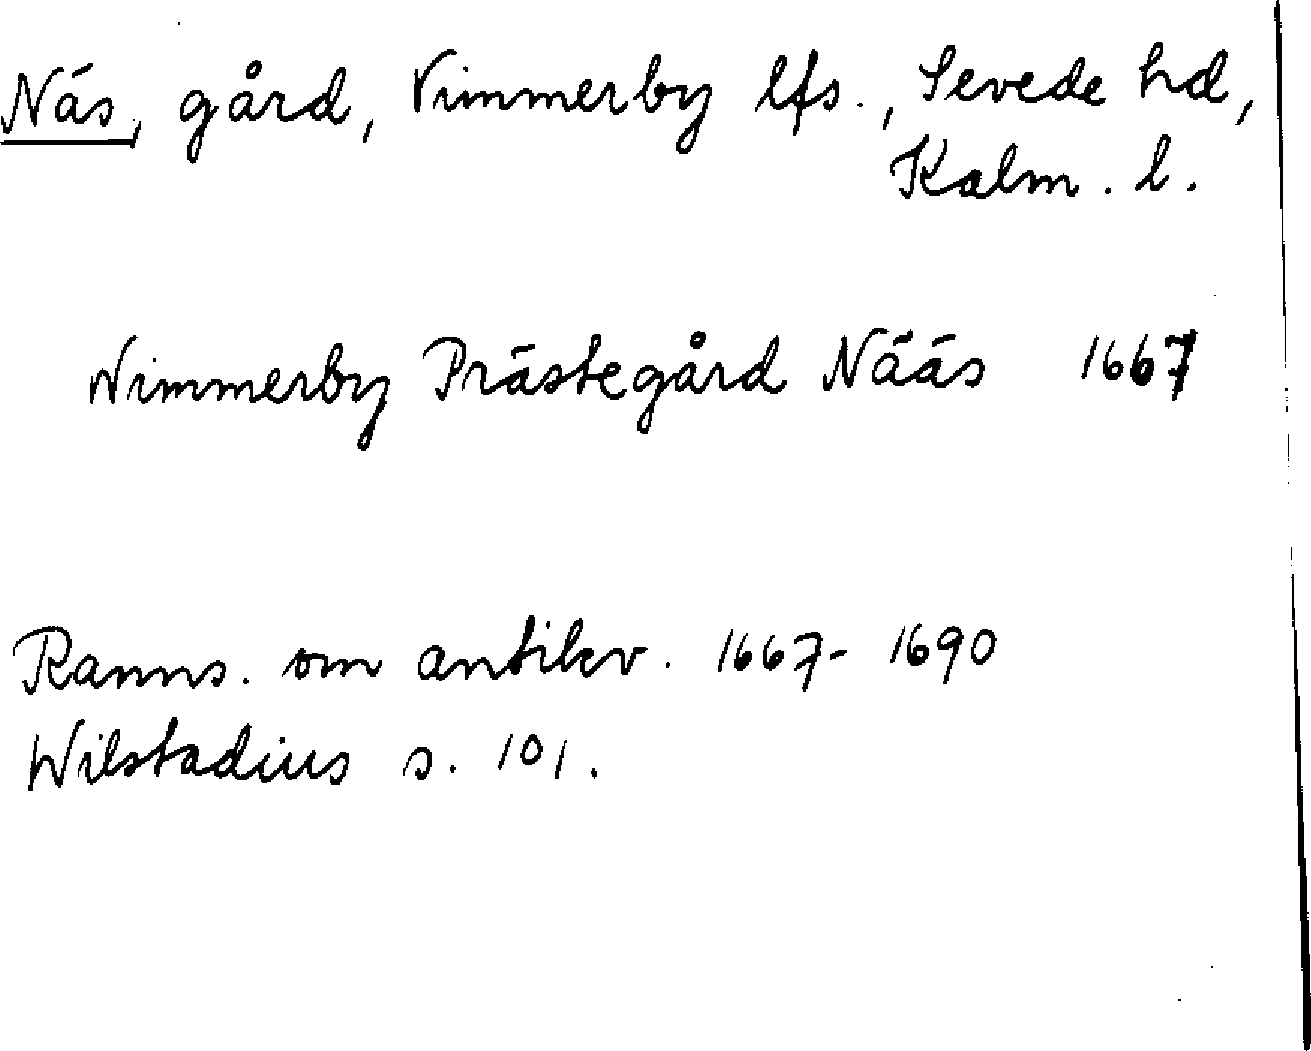 Näs, gård, Vimmerby lfs., Sevede hd,
Kalm. l.
Wimmerby Prästegård Nääs 1667
Ranns. om antikv. 1667-1690
Wilstadius s. 101.